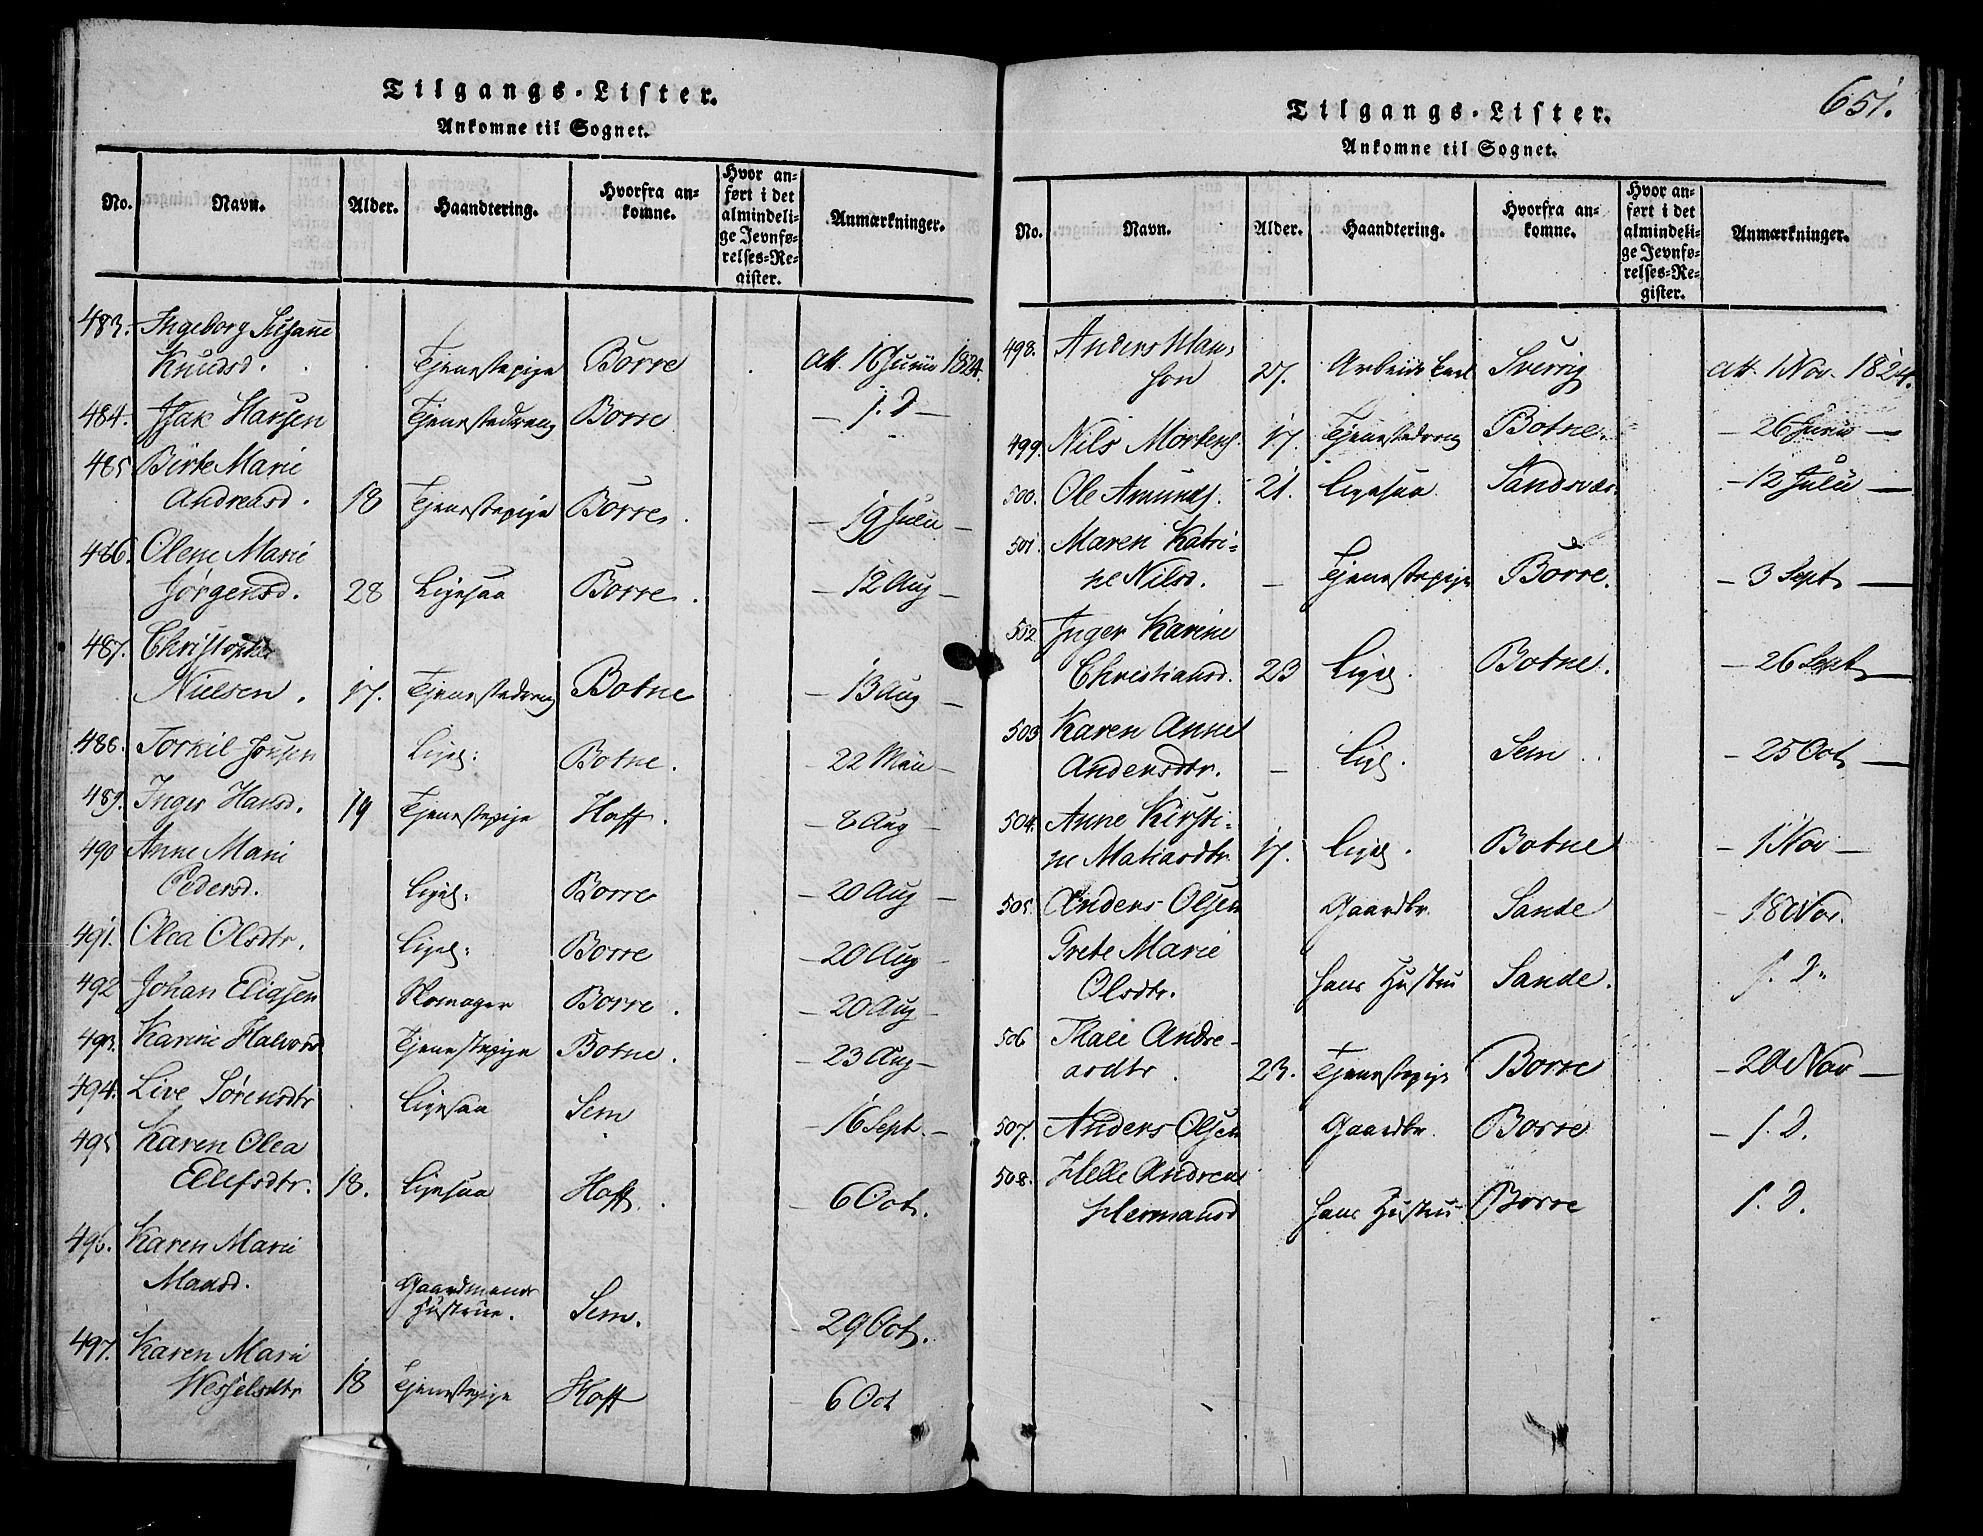 Tilgangs-Lister.
Ankomne til Sognet.
No. Navn. Alder. Haandtering. Hvorfra ankomne. Hvor anført i det almindelige Jevnførelses-Register. Anmærkninger.
483. Ingeborg Susanne
Knudsd. Tjenestepige Borre Att. 16 Junii 1824.
484. Isak Hansen Tjenestedreng Borre — 1. D —
485 Birte Marie
Andreasd. 18 Tjenestepige Borre. — 19 Julii —
486. Olene Marie
Jørgensd. 28 Ligesaa Borre. — 12 Aug —
487. Christopher
Nielsen. 17. Tjenestedreng Botne — 13 Aug —
488. Torkil Jonsen Ligel: Botne. — 22 Maii —
489. Inger Hansd. 19 Tjenestepige Hoff. — 8 Aug —
490 Anne Marie
Pedersd. Ligel: Borre — 20 Aug —
491. Olea Olsdtr. Ligel: Borre — 20 Aug —
492 Johan Eliasen Skomager Borre. — 20 Aug —
493. Karine Halvorsd Tjenestepige Botne. — 23 Aug —
494. Live Sørensdtr Ligesaa Sem — 16 Sept. —
495 Karen Olea
Ellefsdtr. 18. Ligesaa Hoff. — 6 Oct.
496. Karen Marie
Maasd. Gaardmands
Hustrue. Sem. — 29 Oct.
497. Karen Marie
Wesselsdtr 18 Tjenestepige Hoff — 6 Oct
651.
Tilgangs-Lister.
Ankomne til Sognet.
No. Navn. Alder. Haandtering. Hvorfra ankomne. Hvor anført i det almindelige Jevnførelses-Register. Anmærkninger.
498. Anders Man-
son 27. Arbeidskarl Sverrig Att. 1 Nov. 1824.
499. Nils Mortens. 17. Tjenestedreng Botne. — 26 Junii —
500. Ole Amunds. 21. Ligesaa Sandsvær. — 12 Julii —
501. Maren Katri-
ne Nilsd. — Tjenestepige Borre. — 3 Sept —
502. Inger Karine
Christiansd. 23 Ligel. Botne. — 26 Sept —
503 Karen Anne
Andersdtr. — Ligl. Sem. — 25 Oct —
504. Anne Kirsti-
ne Matiasdtr 17. Ligel. Botne — 1 Nov —
505. Anders Olsen Gaardbr. Sande — 18 Nov.
Grete Marie
Olsdtr. Hans Hustru Sande. 1. D.
506 Thale Andre-
asdtr. 23. Tjenestepige Borre — 20 Nov —
507. Anders Olsen Gaardbr. Borre — 1. D.
508. Helle Andrea
Hermansd Hans Hustru Borre 1. D.